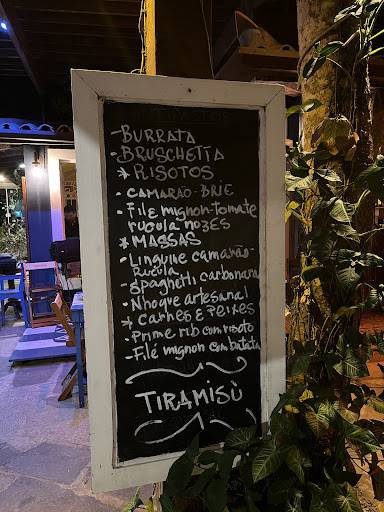 -BURRATA
-BRUSCHETTA
* RISOTOS
-CAMARÃO-BRIE
-FILÉ MIGNON-TOMATE
RUCULA NOZES
* MASSAS
-LINGUINE CAMARÃO-
RUCULA
-SPAGHETTI CARBONARA
-NHOQUE ARTESANAL
* CARNES E PEIXES
-PRIME RIB COM RISOTO
-FILÉ MIGNON COM BATATA
TIRAMISÙ